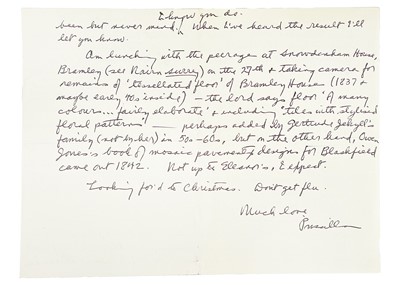 I hope you do.
been but never mind. When I've heard the result I'll
let you know.
Am lunching with the peerage at Snowdenham House,
Bramley (see Nairn Surry) on the 27th & taking camera for
remains of "tessellated floor" of Bramley House (1837 –
maybe early 40s inside) – the lord says floor "A many
colours... fairly elaborate" & including "tiles with stylized
floral patterns" — perhaps added by Gertrude Jekyll's
family (not by her) in 50s–60s, but on the other hand, Owen
Jones's book of mosaic pavement designs for Blashfield
came out 1842. Not up to Eleanor's, I expect.
Looking for'd to Christmas. Don't get flu.
Much love
Priscilla